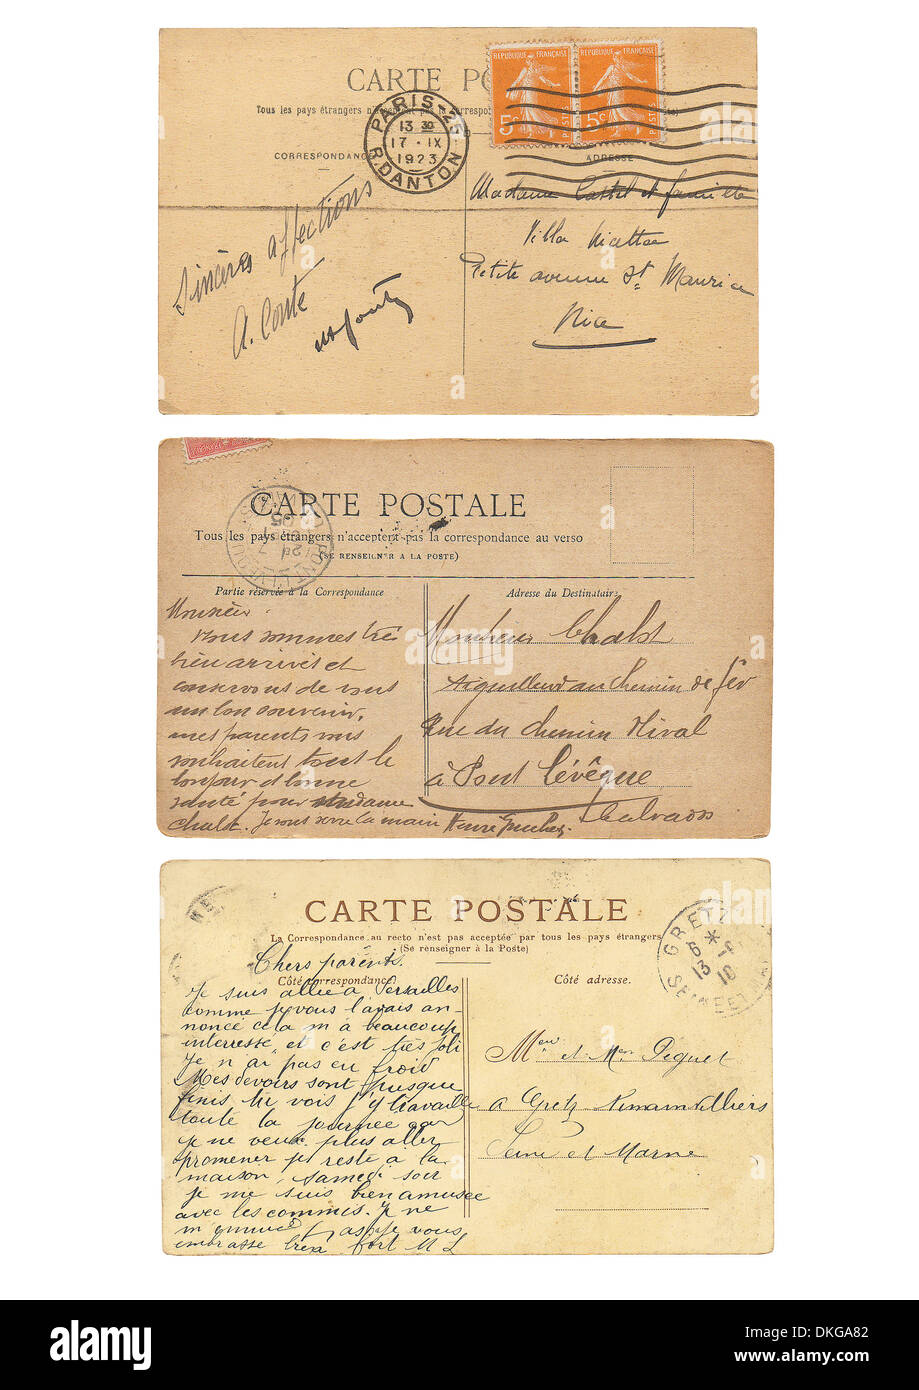 CARTE PO
Tous les pays étrangers n'acceptent pas la correspon
PARIS-25
13 30
17 · IX
1923
R. DANTON
REPUBLIQUE FRANÇAISE
5c
POSTES
REPUBLIQUE FRANÇAISE
5c
POSTES
CORRESPONDANC
ADRESSE
Sincères affections
A. Conte
Madame Castel et famille
Villa
Petite avenue St Maurice
Nice
CARTE POSTALE
Tous les pays étrangers n'acceptent pas la correspondance au verso
(SE RENSEIGNER A LA POSTE)
Partie réservée à la Correspondance
Adresse du Destinataire
Monsieur
vous sommes très
bien arrivés et
conservons de vous
un bon souvenir,
mes parents vous
souhaitent tout le
bonjour et bonne
santé pour Madame
Chalst. Je vous serre la main Henri
Monsieur Chalst
Aiguilleur au chemin de fer
Rue du chemin
à Pont Lévêque
Calvados
CARTE POSTALE
La Correspondance au recto n'est pas acceptée par tous les pays étrangers
(Se renseigner à la Poste)
Côté correspondance
Côté adresse.
GRETZ
6 *
13 10
SEINE ET
Chers parents.
Je suis allée à Versailles
comme je vous l'avais an-
noncé cela m'a beaucoup
interressé, et c'est très joli
Je n'ai pas eu froid
Mes devoirs sont presque
finis tu vois j'y travaille
toute la journée car
je ne veux plus aller
promener je reste à la
maison, samedi soir
je me suis bien amusée
avec les commis. Je ne
m'ennuie pas je vous
embrasse bien fort M L
Mr et Mme Piquet
a Gretz Armainvilliers
Seine et Marne
alamy
Image ID: DKGA82
www.alamy.com